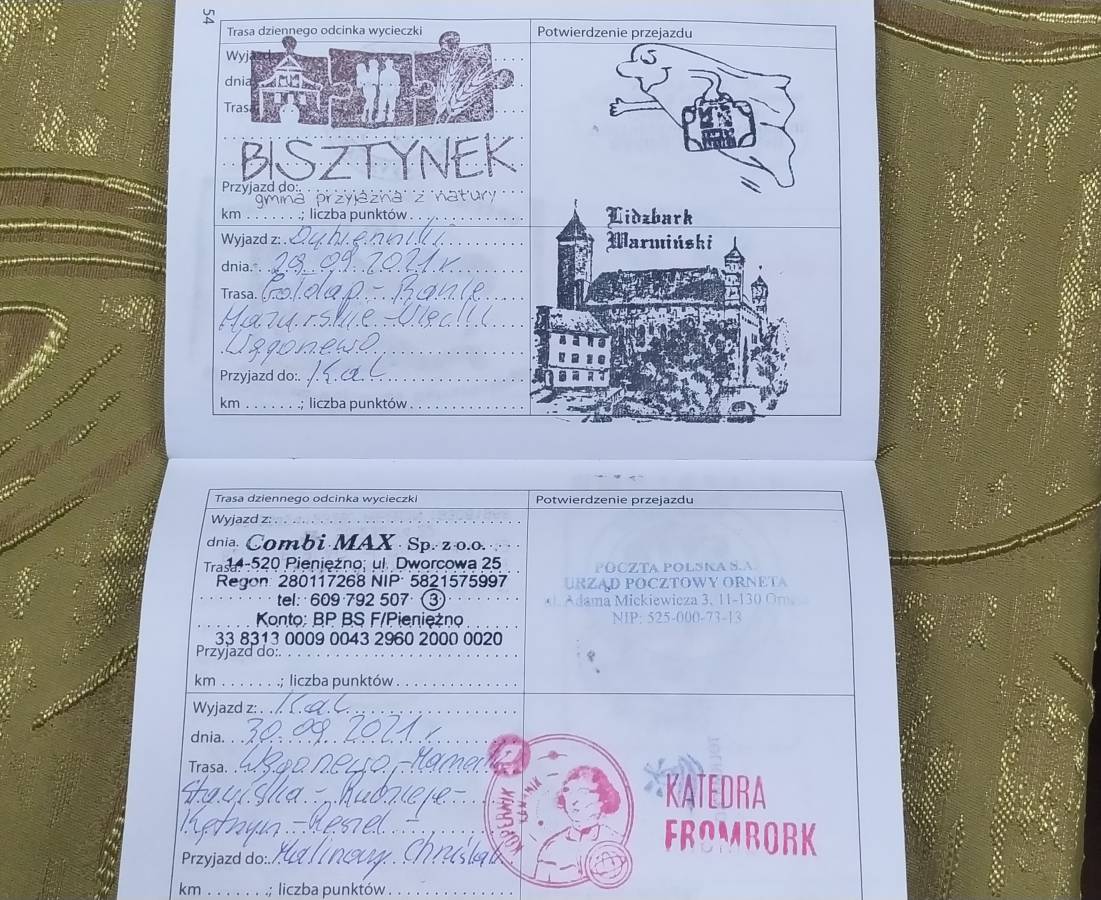 54
Trasa dziennego odcinka wycieczki
Potwierdzenie przejazdu
Wyjazd
dnia
Trasa
BISZTYNEK
Przyjazd do:
gmina przyjazna z natury
km . . . . . . .; liczba punktów
Lidzbark
Warmiński
Wyjazd z:
dnia. 29.09.2021 r.
Trasa. Gołdap - Banie
Mazurskie -
Przyjazd do: Kal
km . . . . . . .; liczba punktów
Trasa dziennego odcinka wycieczki
Potwierdzenie przejazdu
Wyjazd z:
dnia. Combi MAX Sp. z o.o.
Trasa. 14-520 Pieniężno, ul. Dworcowa 25
Regon 280117268 NIP 5821575997
tel.: 609 792 507 3
Konto: BP BS F/Pieniężno
33 8313 0009 0043 2960 2000 0020
Przyjazd do:
km . . . . . . .; liczba punktów
POCZTA POLSKA S.A.
URZĄD POCZTOWY ORNETA
Adama Mickiewicza 3, 11-130
NIP: 525-000-73-13
Wyjazd z: Kal
dnia. 30.09.2021 r.
Trasa. Węgorzewo -
Kętrzyn - Resel -
Przyjazd do:
km . . . . . . .; liczba punktów
KOPERNIK
KATEDRA
FROMBORK